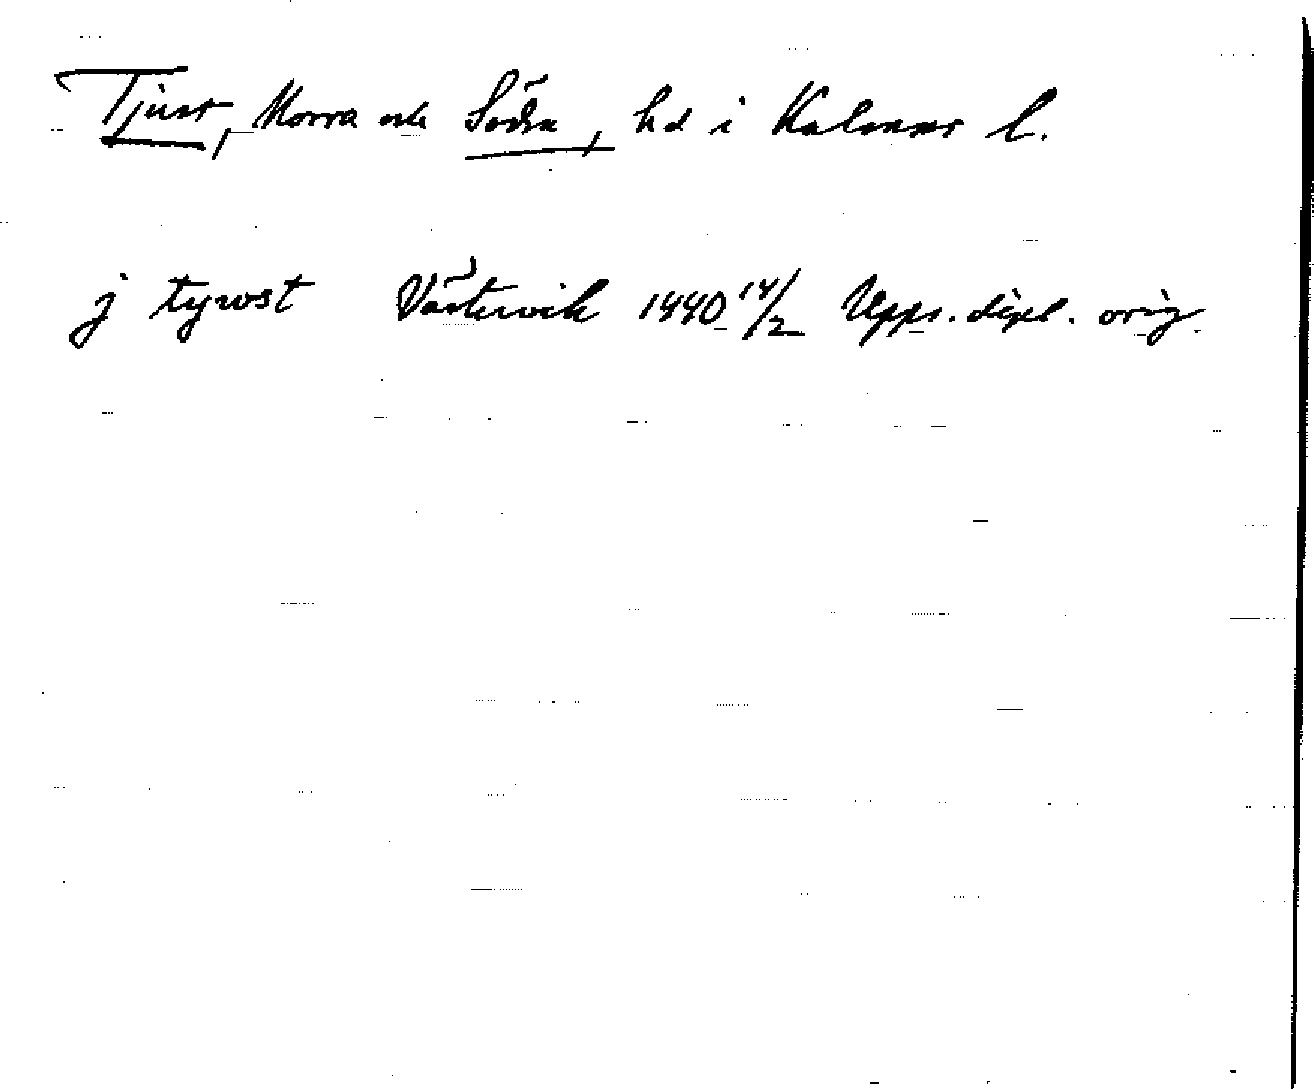 Tjust, Norra och Södra, hd i Kalmar l.
j tywst Västervik 1440 14/2 Upps. dipl. orig.